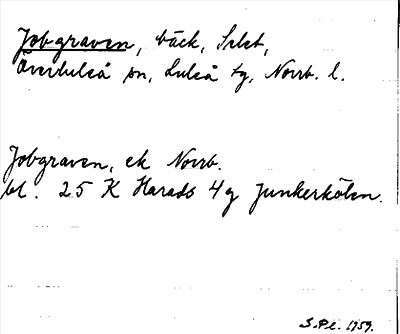 Jobgraven, bäck, Srbst,
Överluleå sn, Luleå tg, Norrb. l.
Jobgraven, ek Norrb.
bl. 25 K Harads 4g Junkerkölen.
S.Pl. 1959.